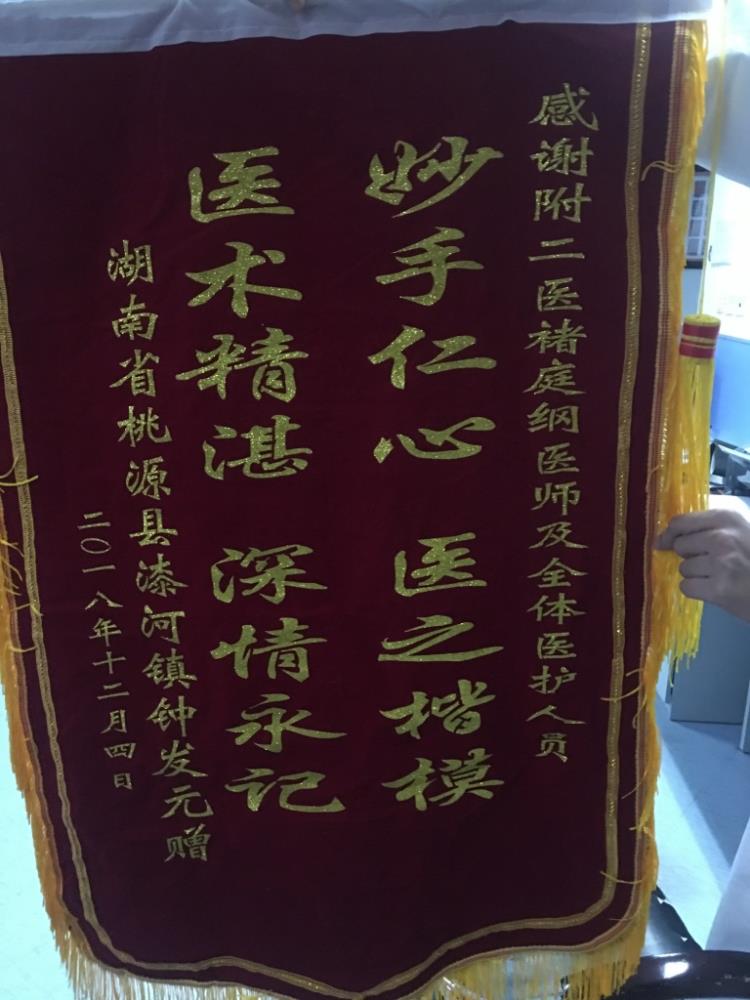 感谢附二医褚庭纲医师及全体医护人员
妙手仁心 医之楷模
医术精湛 深情永记
湖南省桃源县漆河镇钟发元赠
二〇一八年十二月四日